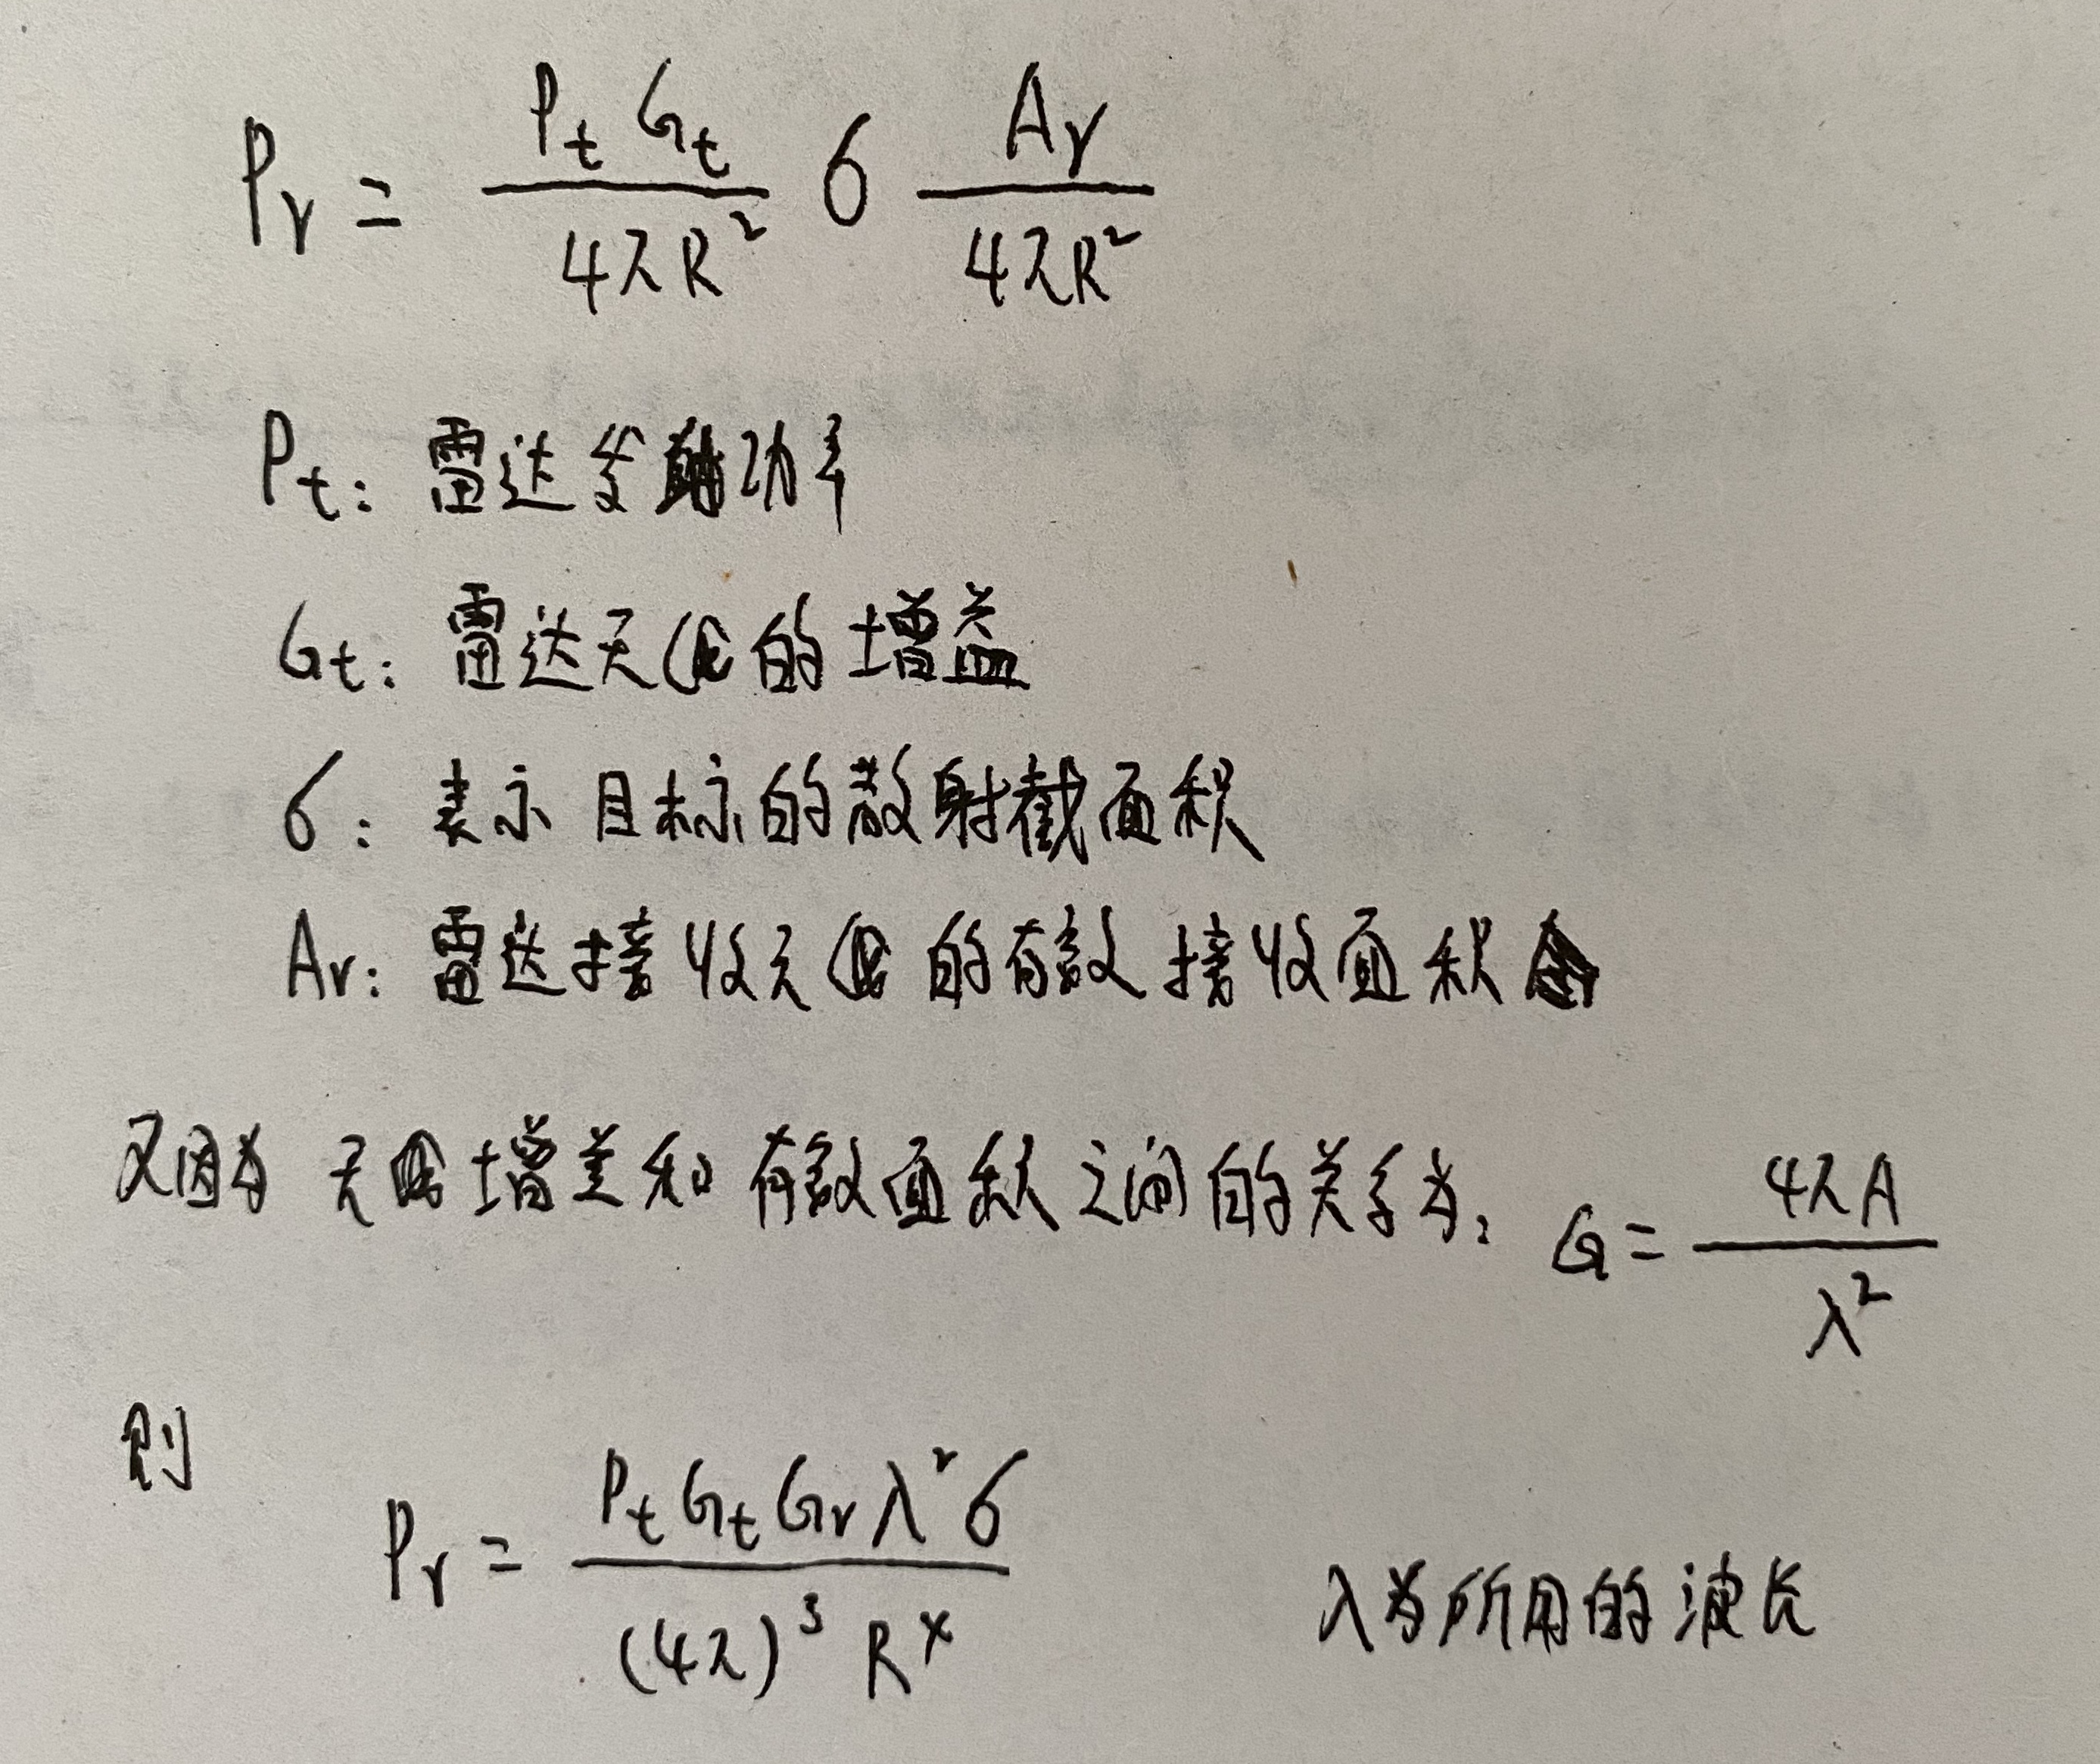 Pr = PtGt / 4πR² σ Ar / 4πR²
Pt: 雷达发射功率
Gt: 雷达天线的增益
σ: 表示目标的散射截面积
Ar: 雷达接收天线的有效接收面积
又因为 天线增益和有效面积之间的关系为: G = 4πA / λ²
则
Pr = PtGtGrλ²σ / (4π)³ R⁴ λ为所用的波长